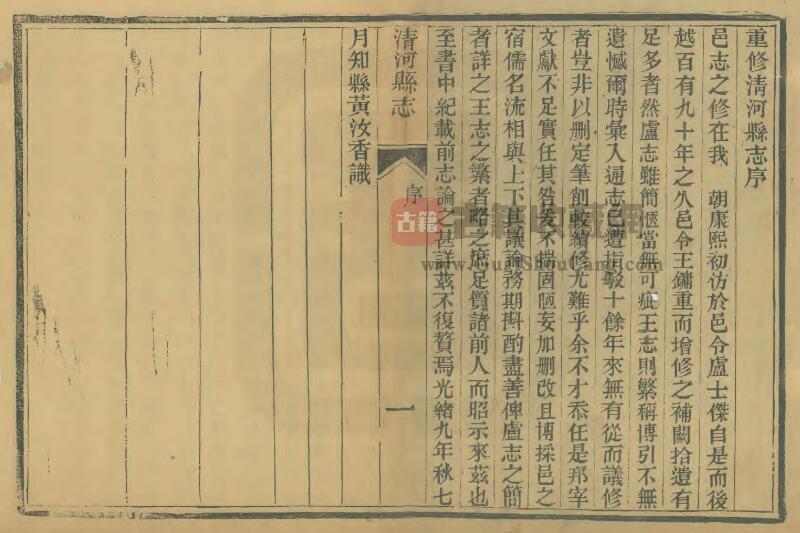 重修清河縣志序
邑志之修在我　朝康熙初仿於邑令盧士傑自是而後
越百有九十年之久邑令王鏞重而增修之補闕拾遺有
足多者然盧志雖簡愜當無可疵王志則繁稱博引不無
遺憾爾時彙入通志已遭指駁十餘年來無有從而議修
者豈非以刪定筆削較續修尤難乎余不才忝任是邦宰
文獻不足實任其咎爰不揣固陋妄加刪改且博採邑之
宿儒名流相與上下其議論務期斟酌盡善俾盧志之簡
者詳之王志之繁者略之庶足質諸前人而昭示來茲也
至書中紀載前志論之甚詳茲不復贅焉光緒九年秋七
清河縣志
序
一
月知縣黃汝香識
古籍
古籍收藏網
www.GuJiShouCang.com